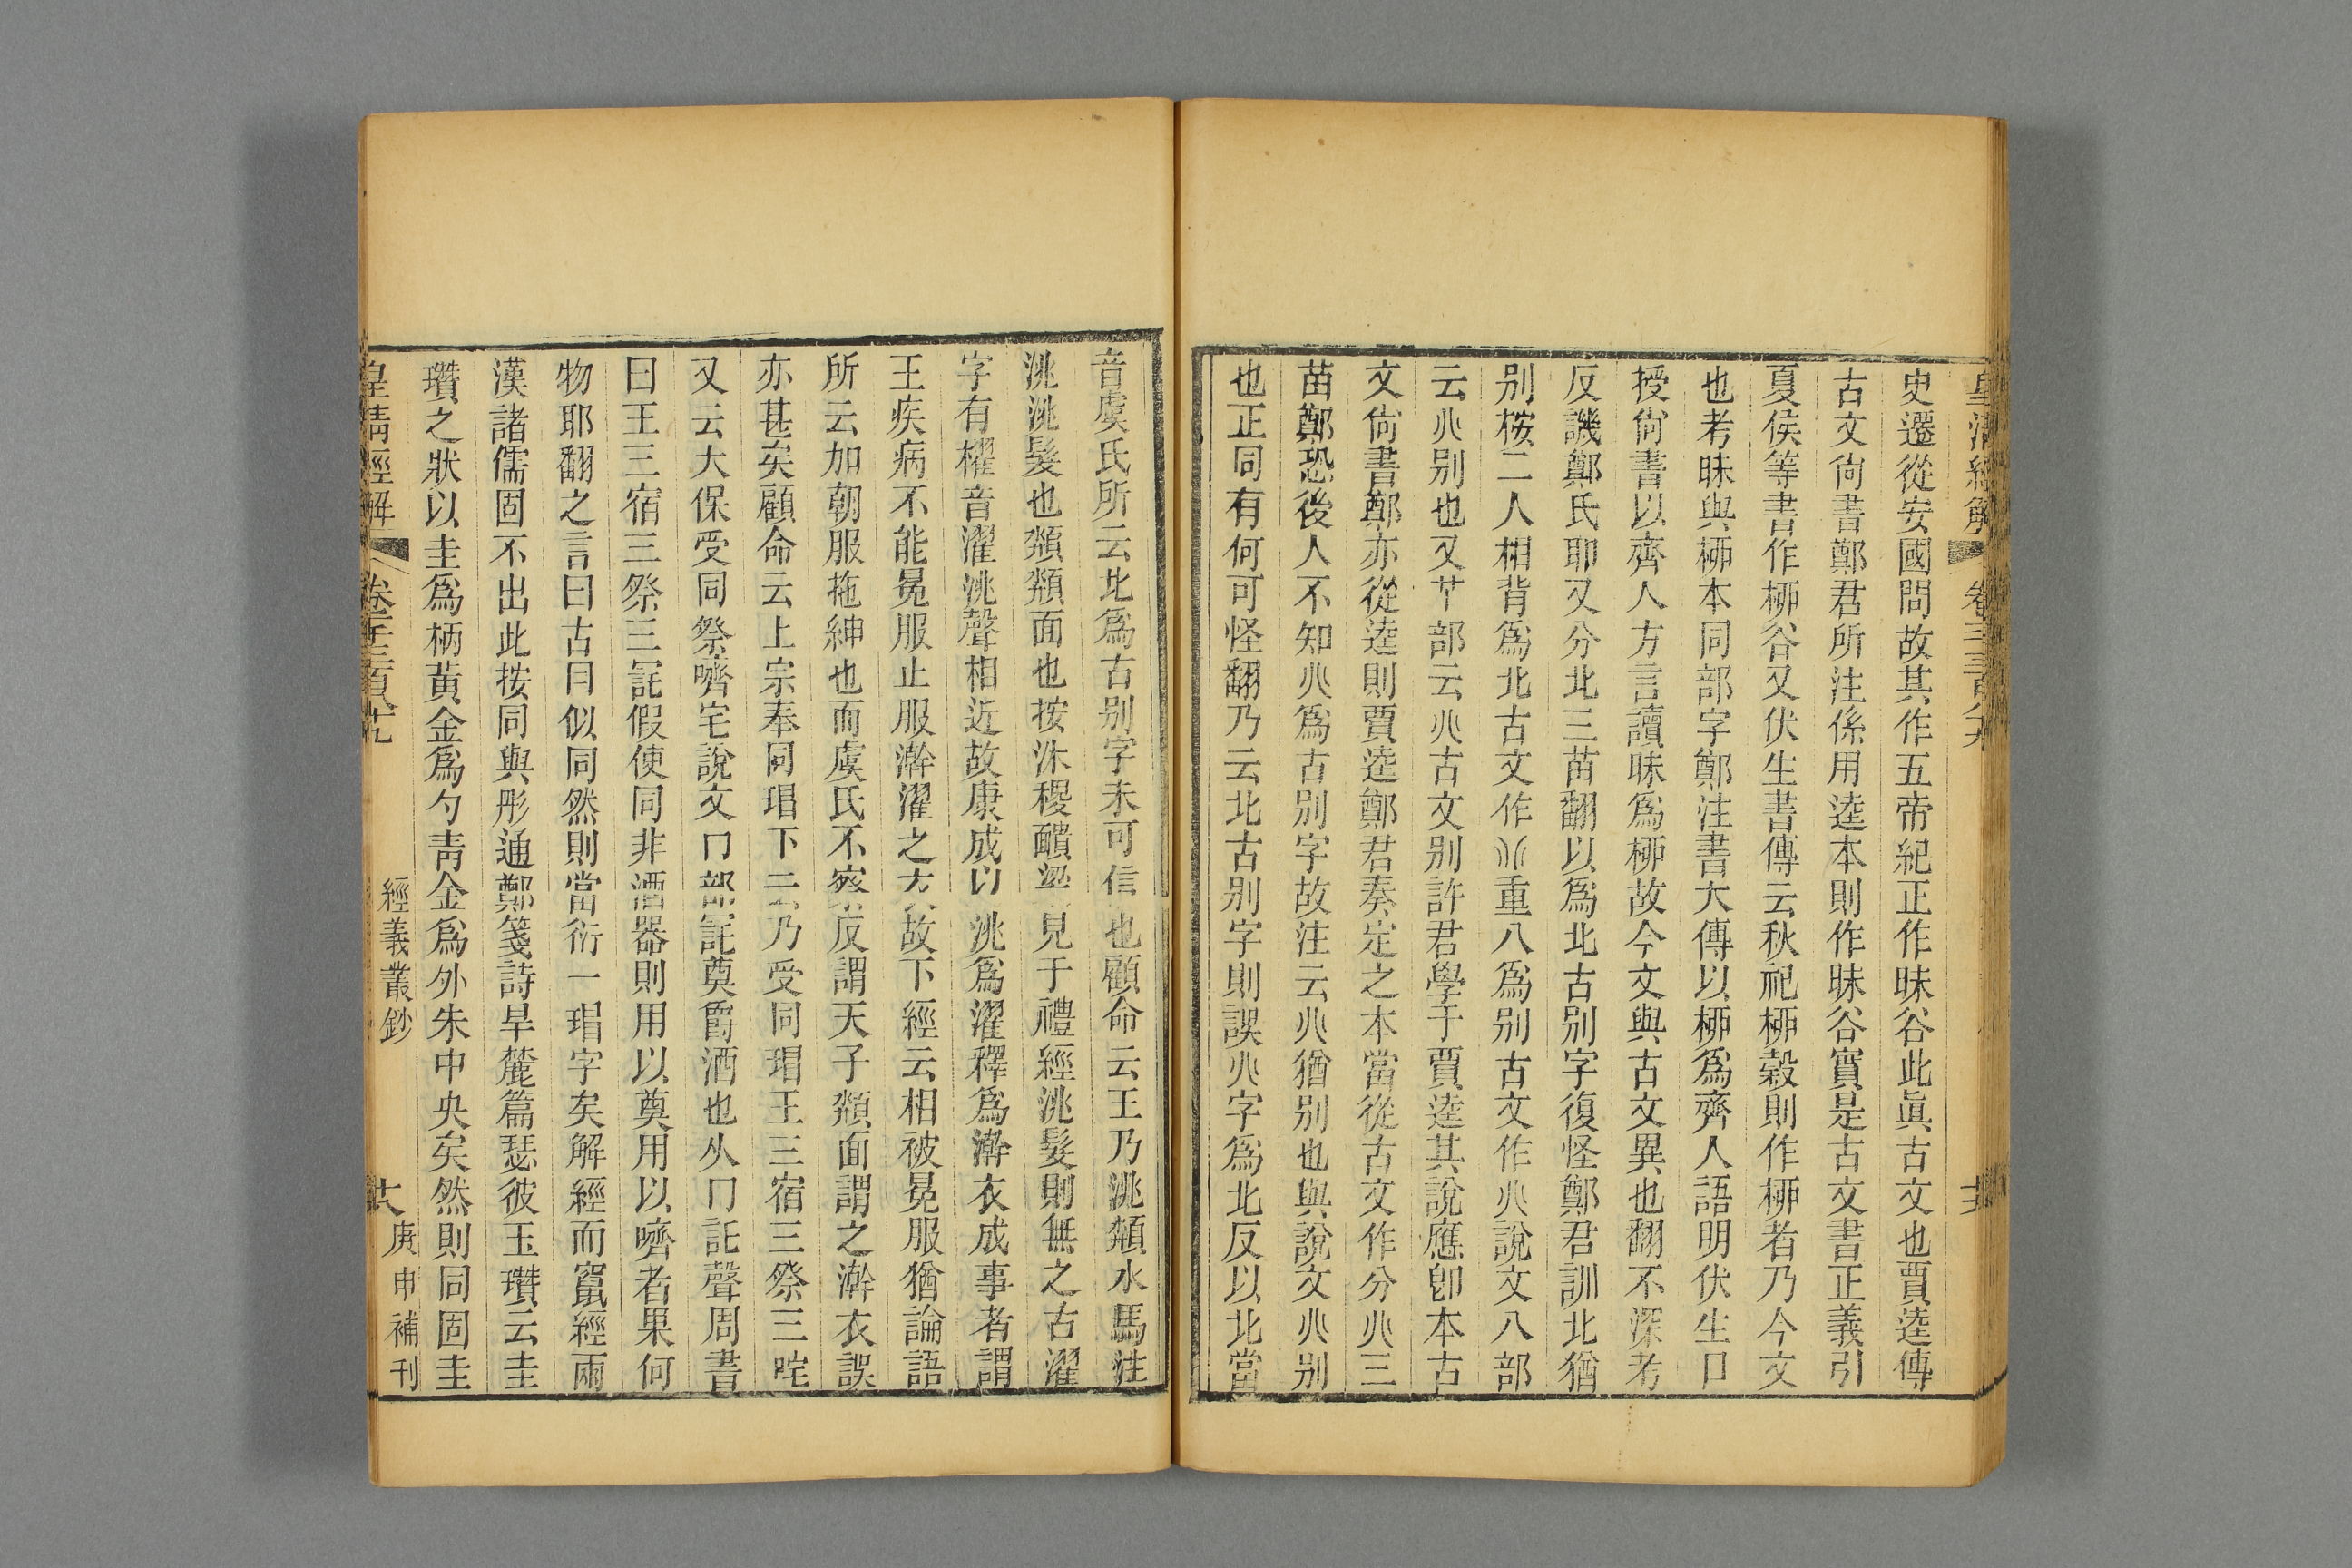 皇清經解 卷三百八九 十六
史遷從安國問故其作五帝紀正作昧谷此眞古文也賈逵傳
古文尙書鄭君所注係用逵本則作昧谷實是古文書正義引
夏侯等書作桺谷又伏生書傳云秋祀桺穀則作桺者乃今文
也考昧與桺本同部字鄭注書大傳以桺爲齊人語明伏生口
授尙書以齊人方言讀昧爲桺故今文與古文異也翻不深考
反譏鄭氏耶又分北三苗翻以爲北古别字復怪鄭君訓北猶
别桉二人相背爲北古文作𠔁重八爲别古文作𠔁說文八部
云𠔁别也又𠦬部云𠔁古文别許君學于賈逵其說應卽本古
文尙書鄭亦從逵則賈逵鄭君奏定之本當從古文作分𠔁三
苗鄭恐後人不知𠔁爲古别字故注云𠔁猶别也與說文𠔁别
也正同有何可怪翻乃云北古别字則誤𠔁字爲北反以北當
音虞氏所云北爲古别字未可信也顧命云王乃洮頮水馬注
洮洮髮也頮頮面也按沐稷醴粱見于禮經洮髮則無之古濯
字有櫂音濯洮聲相近故康成以洮爲濯釋爲澣衣成事者謂
王疾病不能冕服止服澣濯之衣故下經云相被冕服猶論語
所云加朝服拖紳也而虞氏不察反謂天子頮面謂之澣衣誤
亦甚矣顧命云上宗奉同瑁下云乃受同瑁王三宿三祭三咤
又云大保受同祭嚌宅說文冖部𡨄奠爵酒也从冖託聲周書
曰王三宿三祭三𡨄假使同非酒器則用以奠用以嚌者果何
物耶翻之言曰古冃似同然則當衍一瑁字矣解經而竄經兩
漢諸儒固不出此按同與彤通鄭箋詩旱麓篇瑟彼玉瓚云圭
瓚之狀以圭爲柄黃金爲勺靑金爲外朱中央矣然則同固圭
皇清經解 卷千三百八十九 經義叢鈔 十六 庚申補刊